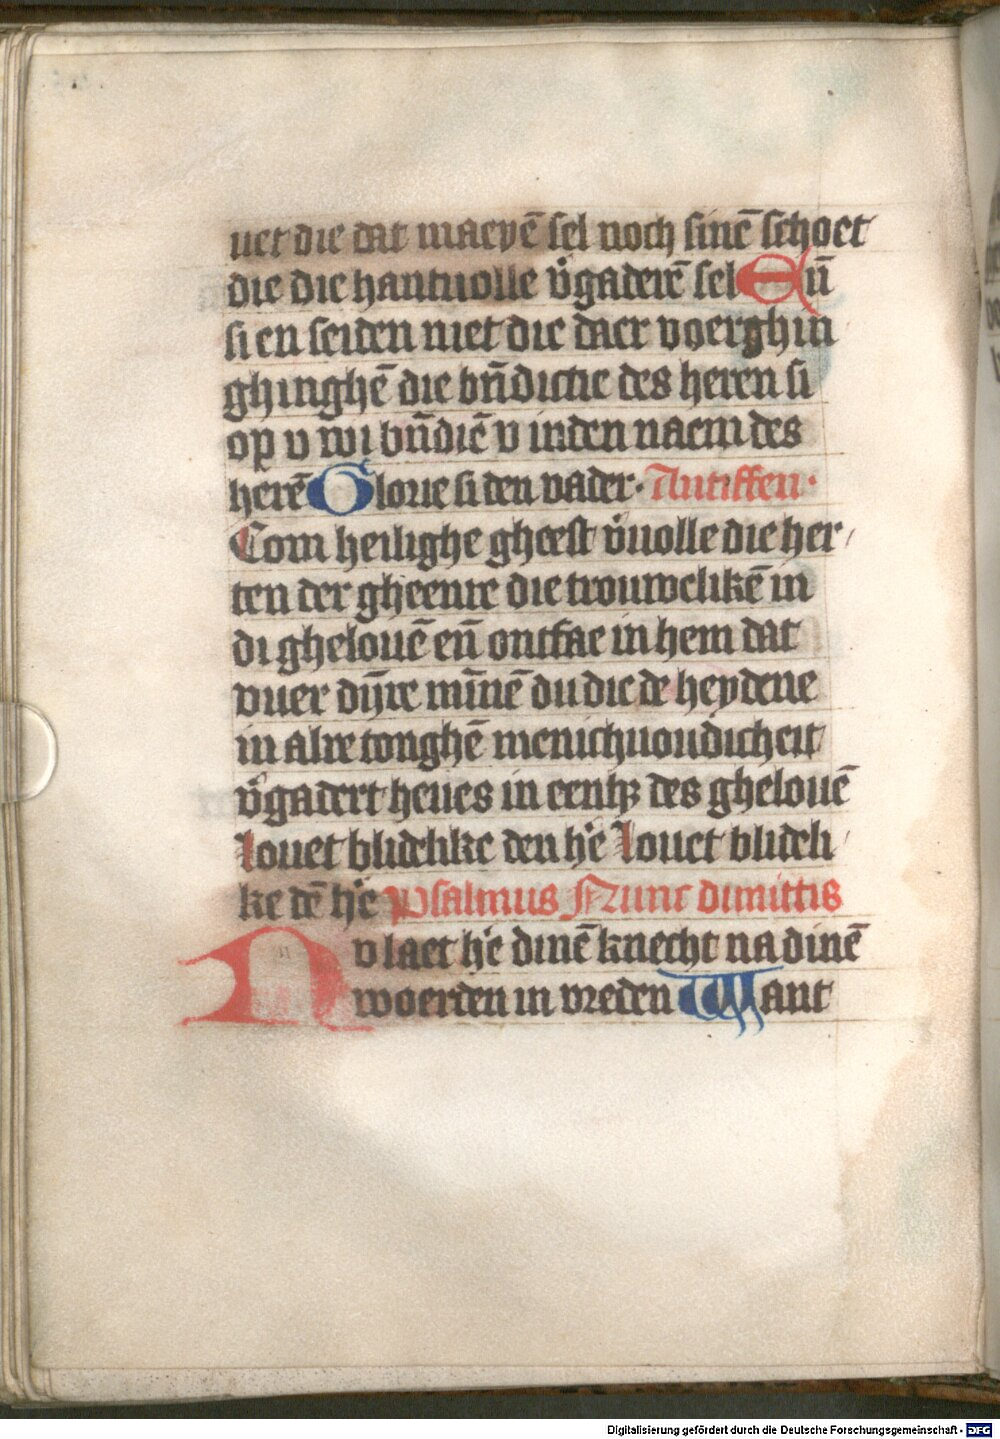 uet die dat maeyē sel noch sinē schoet
die die hantuolle v̄gaderē sel Eñ
si en seiden niet die daer voerghin
ghinghē die bn̄dictie des heren si
op v wi bn̄diē v inden naem des
herē Glorie si den vader· Antiffen·
Com heilighe gheest v̄uolle die her/
ten der gheenre die trouwelikē in
di ghelouē en̄ ontfae in hem dat
vuer dijnre mīnē du die de heydene
in alre tonghē menichuoudicheit
v̄gadert heues in eenhꝫ des ghelouē
louet blidelike den hē louet blideli/
ke dē hē Psalmus Nunc dimittis
Nv laet hē dinē knecht na dinē
woerden in vreden Want
Digitalisierung gefördert durch die Deutsche Forschungsgemeinschaft - DFG